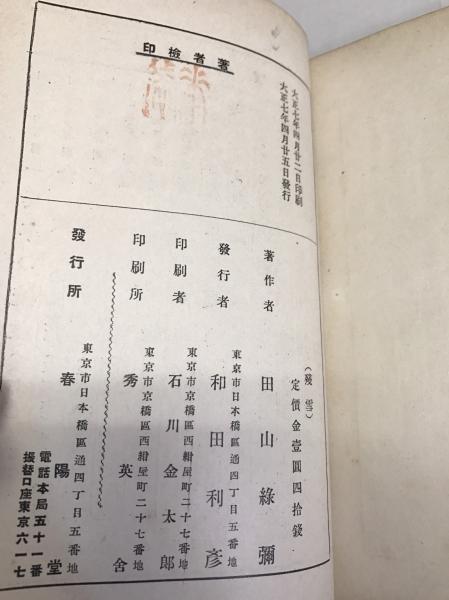 著者檢印
大正七年四月廿二日印刷
大正七年四月廿五日發行
（殘雪）
定價金壹圓四拾錢
著作者 田山綠彌
東京市日本橋區通四丁目五番地
發行者 和田利彥
東京市京橋區西紺屋町二十七番地
印刷者 石川金太郎
東京市京橋區西紺屋町二十七番地
印刷所 秀英舍
東京市日本橋區通四丁目五番地
發行所 春陽堂
電話本局五十一番
振替口座東京六一七